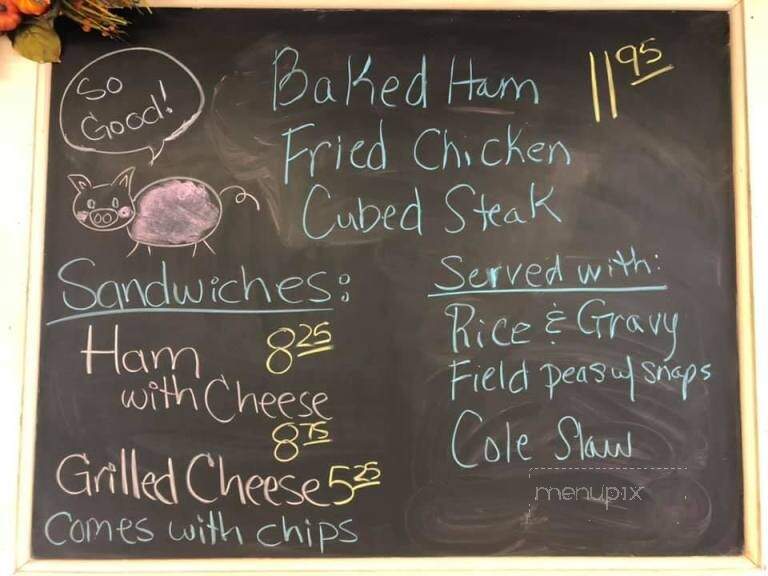 So
Good!
Baked Ham 11 95
Fried Chicken
Cubed Steak
Sandwiches:
Ham 8 25
with Cheese
8 75
Grilled Cheese 5 25
Comes with chips
Served with:
Rice & Gravy
Field peas w/ snaps
Cole Slaw
menupix